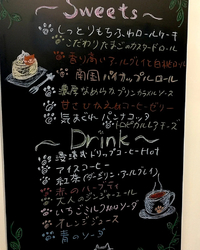 ~Sweets~
しっとりもちふわロールケーキ
こだわりたまごのカスタードロール
香り高いアールグレイと白桃ロール
南国パイナップルロール
濃厚なめらかプリンカラメルソース
甘さひかえめコーヒーゼリー
気まぐれパンナコッタ
~Drink~
ドリップコーヒーHot
アイスコーヒー
紅茶(ダージリン・アールグレイ)
赤のハーブティ
大人のジンジャーエール
いちごミルク
オレンジジュース
青のソーダ